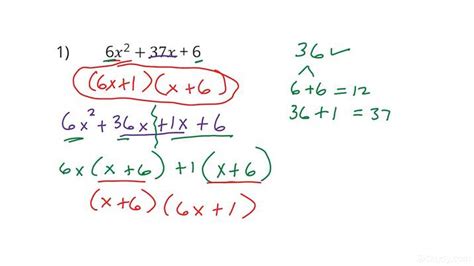 1) 6x² + 37x + 6
(6x+1)(x+6)
6x² + 36x + 1x + 6
6x(x+6) + 1(x+6)
(x+6)(6x+1)
36 ✓
6+6 = 12
36+1 = 37